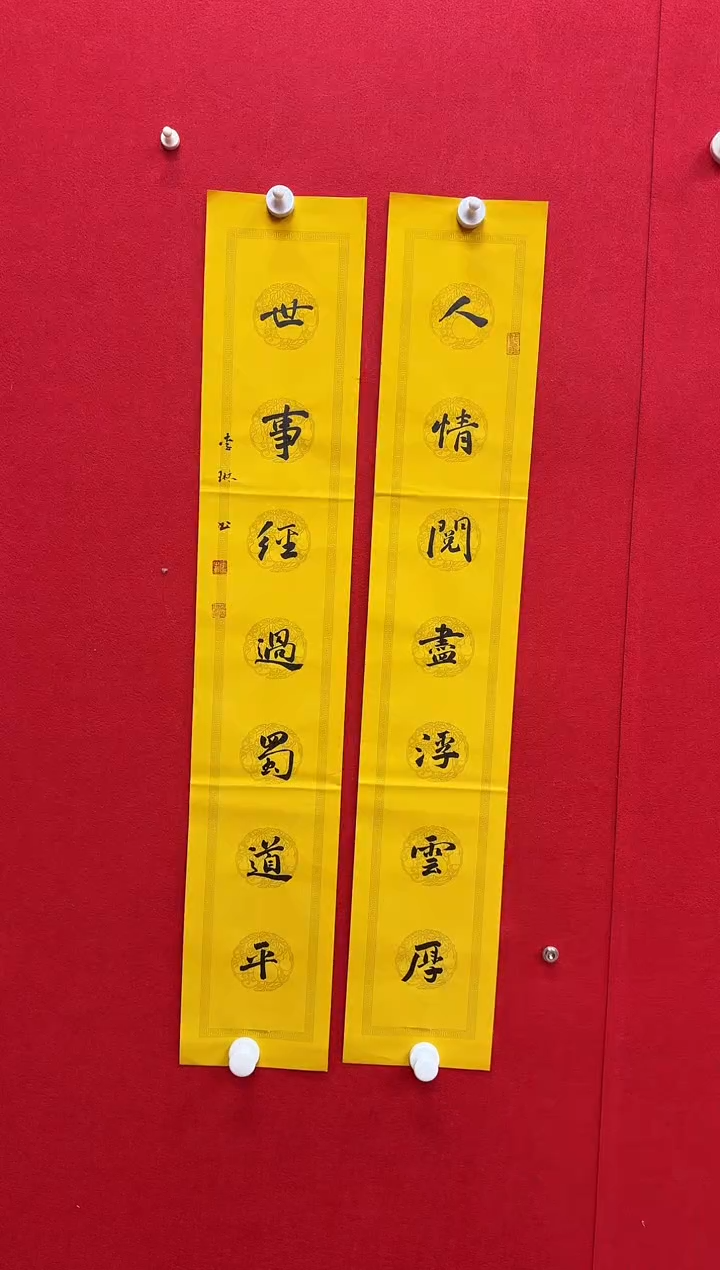 人情閱盡浮雲厚
世事經過蜀道平
李琳书